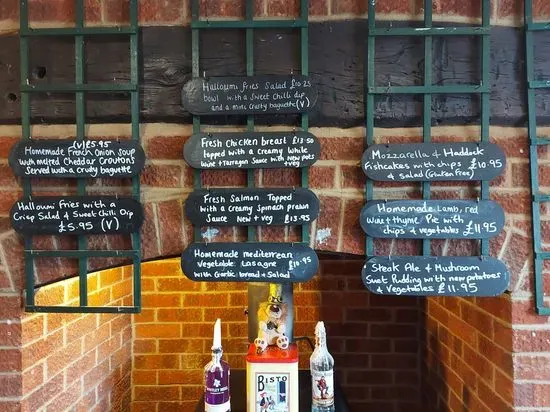 (V) £5.95
Homemade French Onion Soup
with melted Cheddar Croutons
Served with a crusty baguette
Halloumi fries with a
Crisp Salad & Sweet Chilli Dip
£5.95 (V)
Halloumi fries Salad £10.25
bowl with a Sweet Chilli dip
and a mini Crusty baguette (V)
Fresh Chicken breast £13.50
topped with a Creamy White
Wine + Tarragon Sauce with New pots
+ veg
Fresh Salmon Topped
with a Creamy Spinach Prawn
Sauce New + veg £13.95
Homemade mediterrean
Vegetable Lasagne £10.95
with Garlic bread & Salad
Mozzarella & Haddock
Fishcakes with chips £10.95
& Salad (Gluten Free)
Homemade Lamb, red
Wine + thyme Pie with
chips & vegetables £11.95
Steak Ale & Mushroom
Suet Pudding with new potatoes
& Vegetables £11.95
BISTO